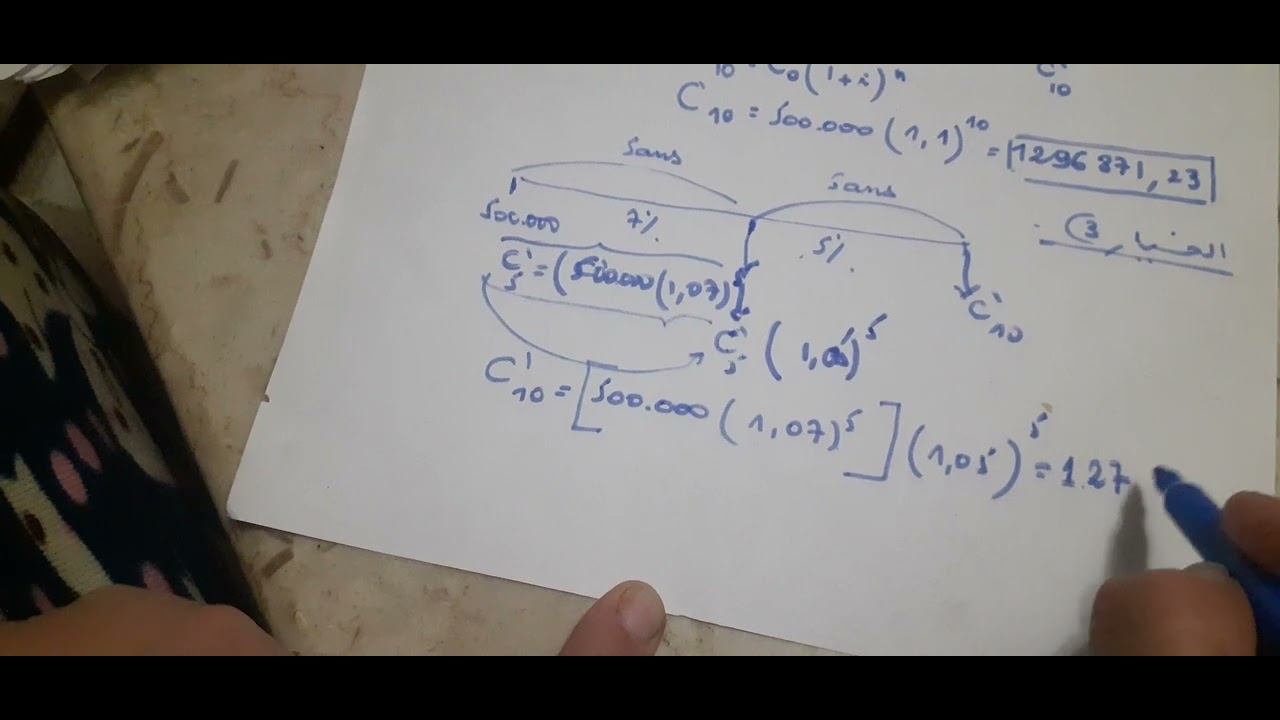 10 = C0 (1+i)^n C'10
C10 = 500.000 (1,1)^10 = 1296 871,23
5ans 5ans
500.000 7% 5% C'10
C'5 = (500.000 (1,07)^5
C'5 (1,05)^5
C'10 = [500.000 (1,07)^5] (1,05)^5 = 1.27